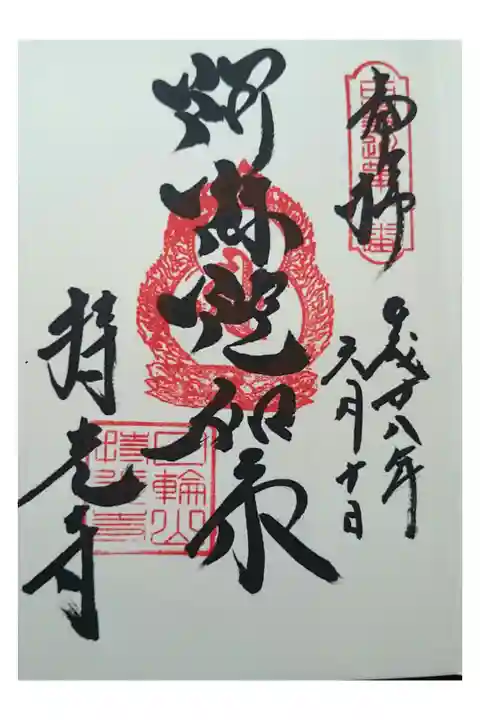 奉拝
平成廿八年
六月十日
阿弥陀如来
日輪山
持光寺
持光寺